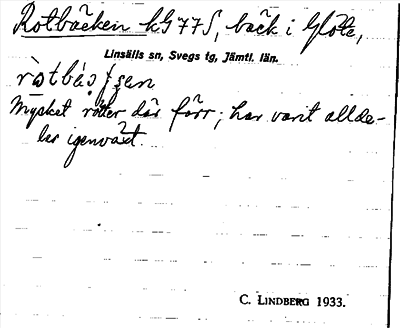 Rotbäcken hG77S, bäck i Glöte,
Linsälls sn, Svegs tg, Jämtl. län.
Mycket rötter där förr; har varit allde-
les igenväxt.
C. LINDBERG 1933.